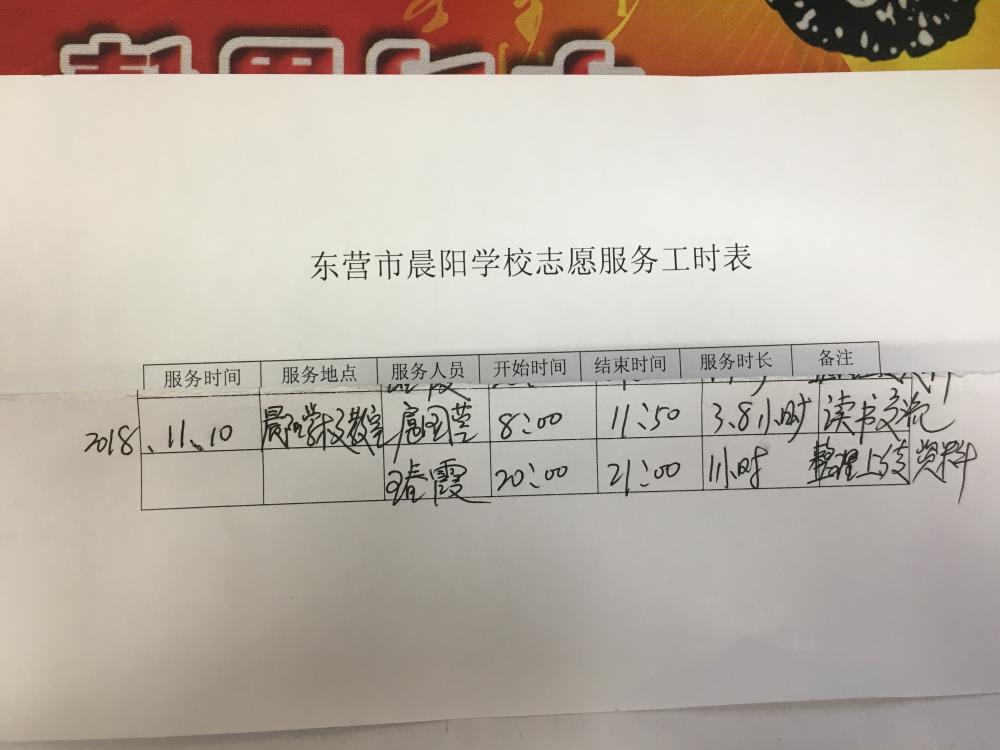 东营市晨阳学校志愿服务工时表
服务时间 服务地点 服务人员 开始时间 结束时间 服务时长 备注
2018、11、10 晨阳学校教室 扈国莲 8:00 11:50 3.8小时 读书交流
春霞 20:00 21:00 1小时 整理上传资料